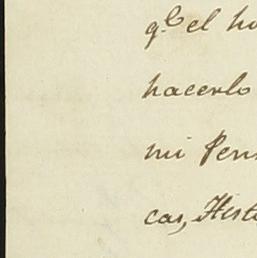 q.e el ho
hacerlo
mi Pens
cas, Histo